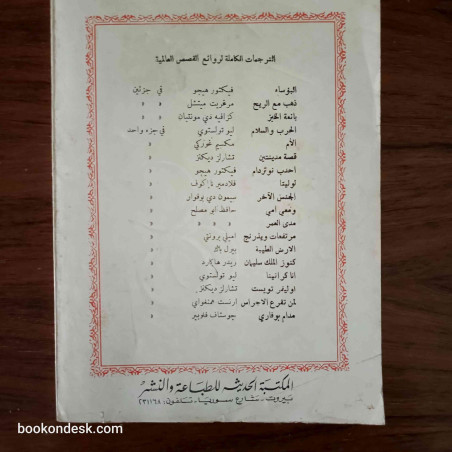 الترجمات الكاملة لروائع القصص العالمية
البؤساء فيكتور هيجو في جزئين
ذهب مع الريح مرغريت ميتشل » »
بائعة الخبز كزافيه دي مونتبان » »
الحرب والسلام ليو تولستوي في جزء واحد
الأم مكسيم غوركي »
قصة مدينتين تشارلز ديكنز »
احدب نوتردام فيكتور هيجو »
لوليتا فلاديمير نابوكوف »
الجنس الآخر سيمون دي بوفوار »
ومعي أمي حافظ ابو مصلح »
مدى العمر » »
مرتفعات ويذرنج اميلي برونتي »
الارض الطيبة بيرل باك »
كنوز الملك سليمان ريدر هاكارد »
انا كرانينا ليو تولستوي »
اوليفر تويست تشارلز ديكنز »
لمن تقرع الاجراس ارنست همنغواي »
مدام بوفاري جوستاف فلوبير »
المكتبة الحديثة للطباعة والنشر
بيروت - شارع سوريا - تلفون: ٢٣١١٦٨
bookondesk.com